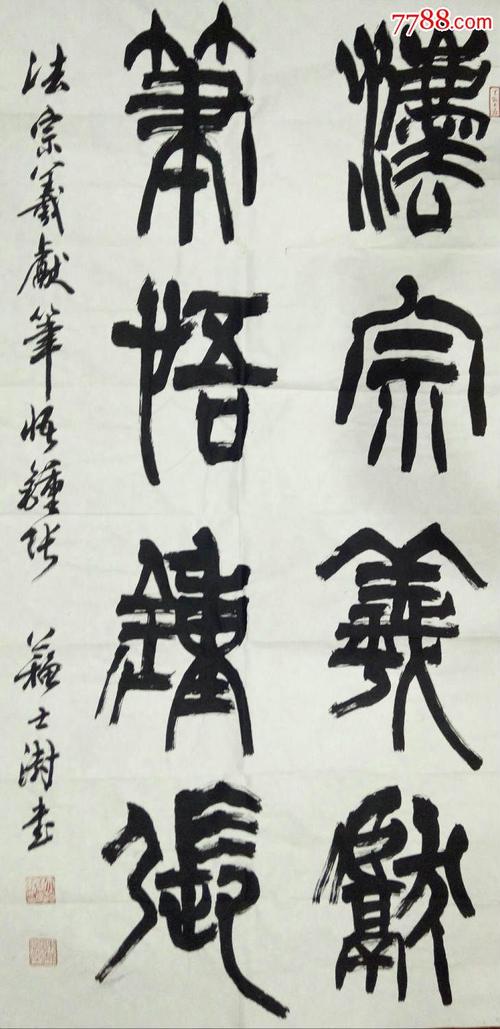 7788.com
灋宗羲獻
筆悟鍾張
法宗羲獻筆悟鍾張 蘇士澍書